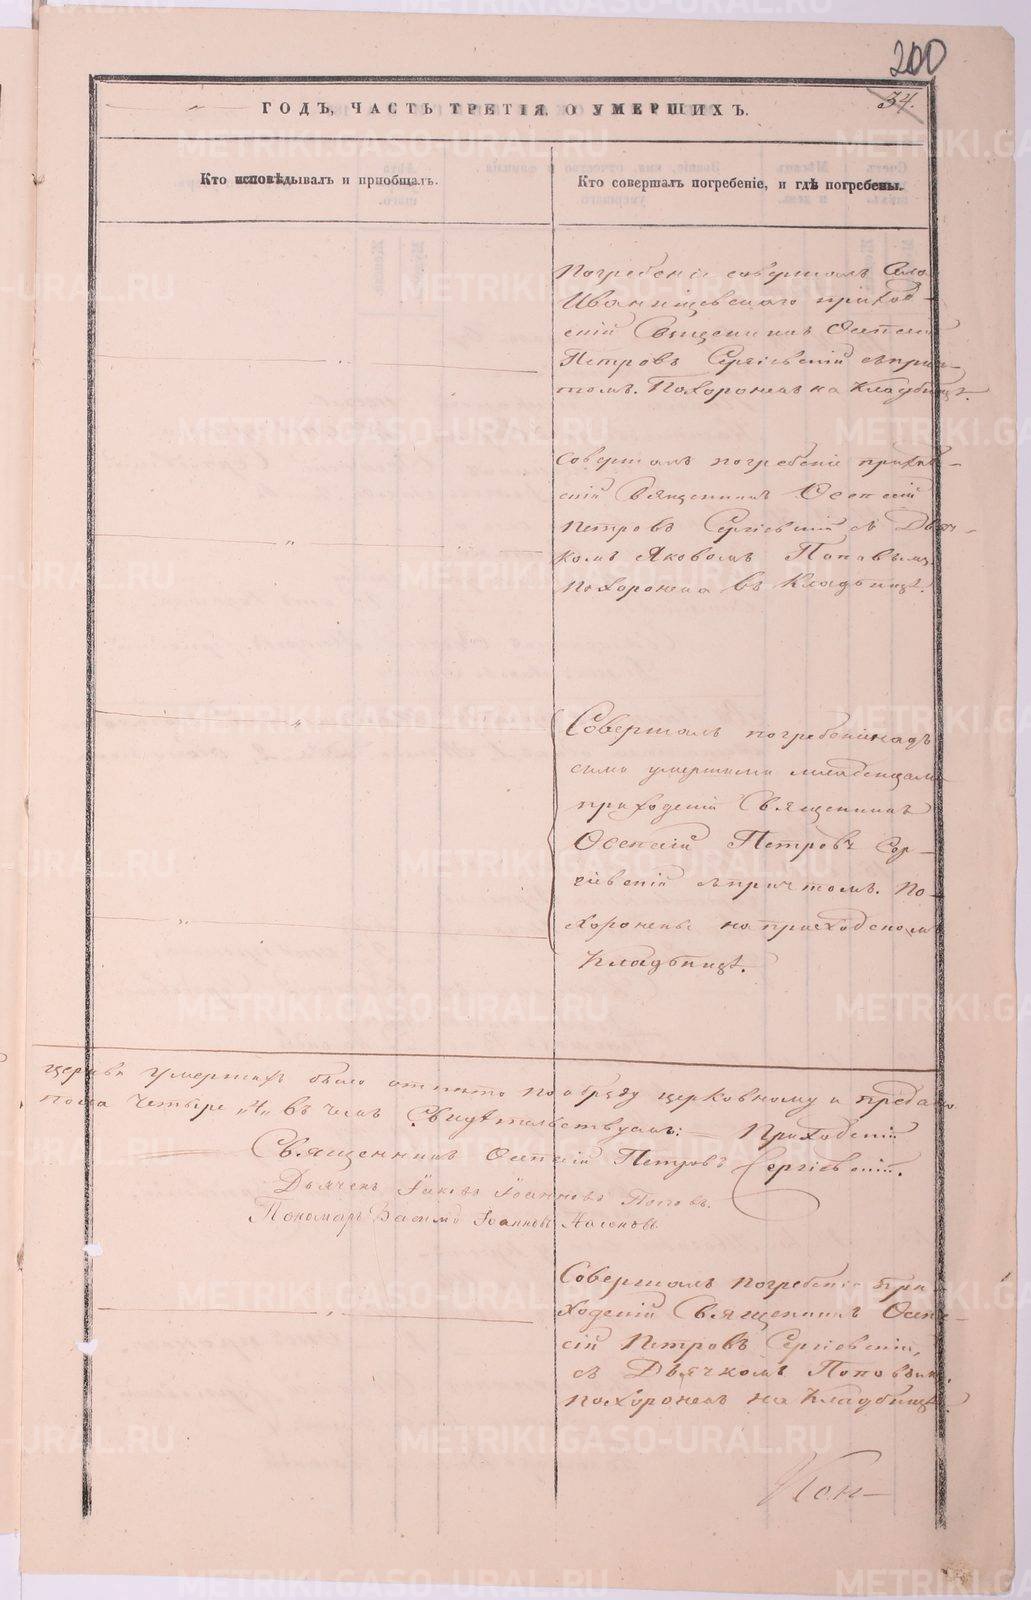 200
34.
ГОДЪ, ЧАСТЬ ТРЕТІЯ, О УМЕРШИХЪ.
Кто исповѣдывалъ и пріобщалъ.
Кто совершалъ погребеніе, и гдѣ погребены.
Погребеніе совершалъ Села
Иванищевскаго приход-
скій Священникъ
Петровъ Сергіевскій съ прич-
томъ. Похороненъ на Кладбищѣ.
Совершалъ погребеніе приход-
скій Священникъ
Петровъ Сергіевскій съ Дьяч-
комъ Яковомъ Поповымъ
Похоронена въ Кладбищѣ.
Совершалъ погребеніе надъ
сими умершими младенцами
приходскій Священникъ
Петровъ Сер-
гіевскій съ причтомъ. По-
хоронены на приходскомъ
Кладбищѣ.
церкви Умершихъ было отпѣто по обряду церковному и предано
Четыре „4„ въ чемъ Свидѣтельствуемъ: Приходскій
Священникъ Петровъ Сергіевскій.
Дьячекъ Іаковъ Іоанновъ Поповъ.
Пономарь Василій Іоанновъ
Совершалъ погребеніе при
ходскій Священникъ
Петровъ Сергіевскій,
съ Дьячкомъ Поповымъ,
похороненъ на Кладбищѣ.
METRIKI.GASO-URAL.RU